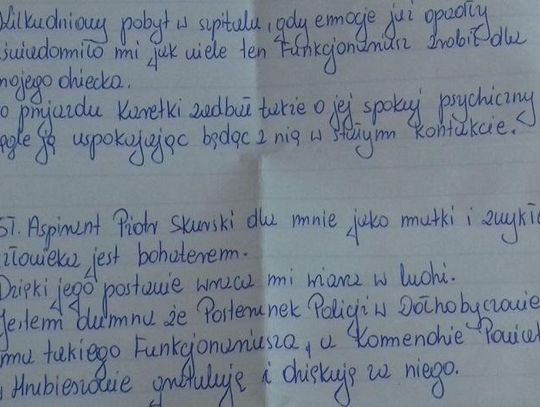 Kilkudniowy pobyt w szpitalu, gdy emocje już opadły
uświadomiło mi jak wiele ten Funkcjonariusz zrobił dla
mojego dziecka.
o przyjazdu karetki zadbał także o jej spokój psychiczny
ągle ją uspokajając będąc z nią w stałym kontakcie.
ST. Aspirant Piotr Skurski dla mnie jako matki i zwykłe
złowieka jest bohaterem.
Dzięki jego postawie wraca mi wiara w ludzi.
Jestem dumna że Posterunek Policji w Dołhobyczowie
ma takiego Funkcjonariusza, a Komendzie Powiat
w Hrubieszowie gratuluję i dziękuję za niego.